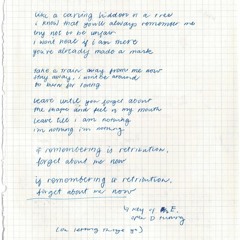 like a carving hidden in a tree
i know that you'll always remember me
try not to be unfair
i wont heal if i am more
you've already made a mark
take a train away from me now
stay away, i wont be around
to burn for long
leave until you forget about
the shape and feel of my mouth
leave till i am nothing
im nothing im nothing.
if remembering is retribution,
forget about me now
if remembering is retribution,
forget about me now
key of E,
open D tuning
(on learning things go)